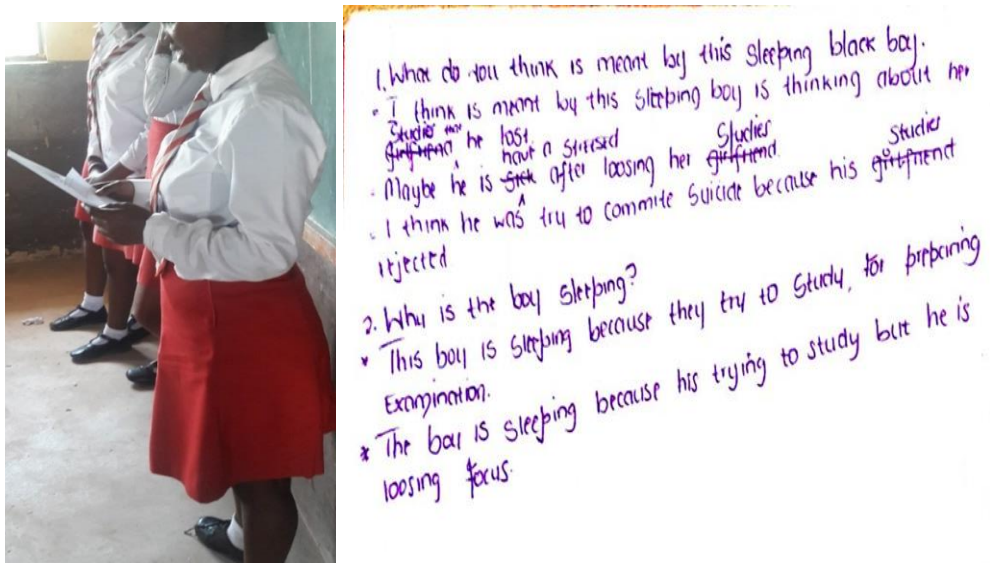 1. What do you think is meant by this sleeping black boy.
• I think is meant by this sleeping boy is thinking about her
Studies he lost
girlfriend
• Maybe he is sick have a stressed after loosing her girlfriend Studies
• I think he was try to commite suicide because his girlfriend Studies
rejected
2. Why is the boy sleeping?
* This boy is sleeping because they try to study, for preparing
Examination.
* The boy is sleeping because his trying to study but he is
loosing focus.